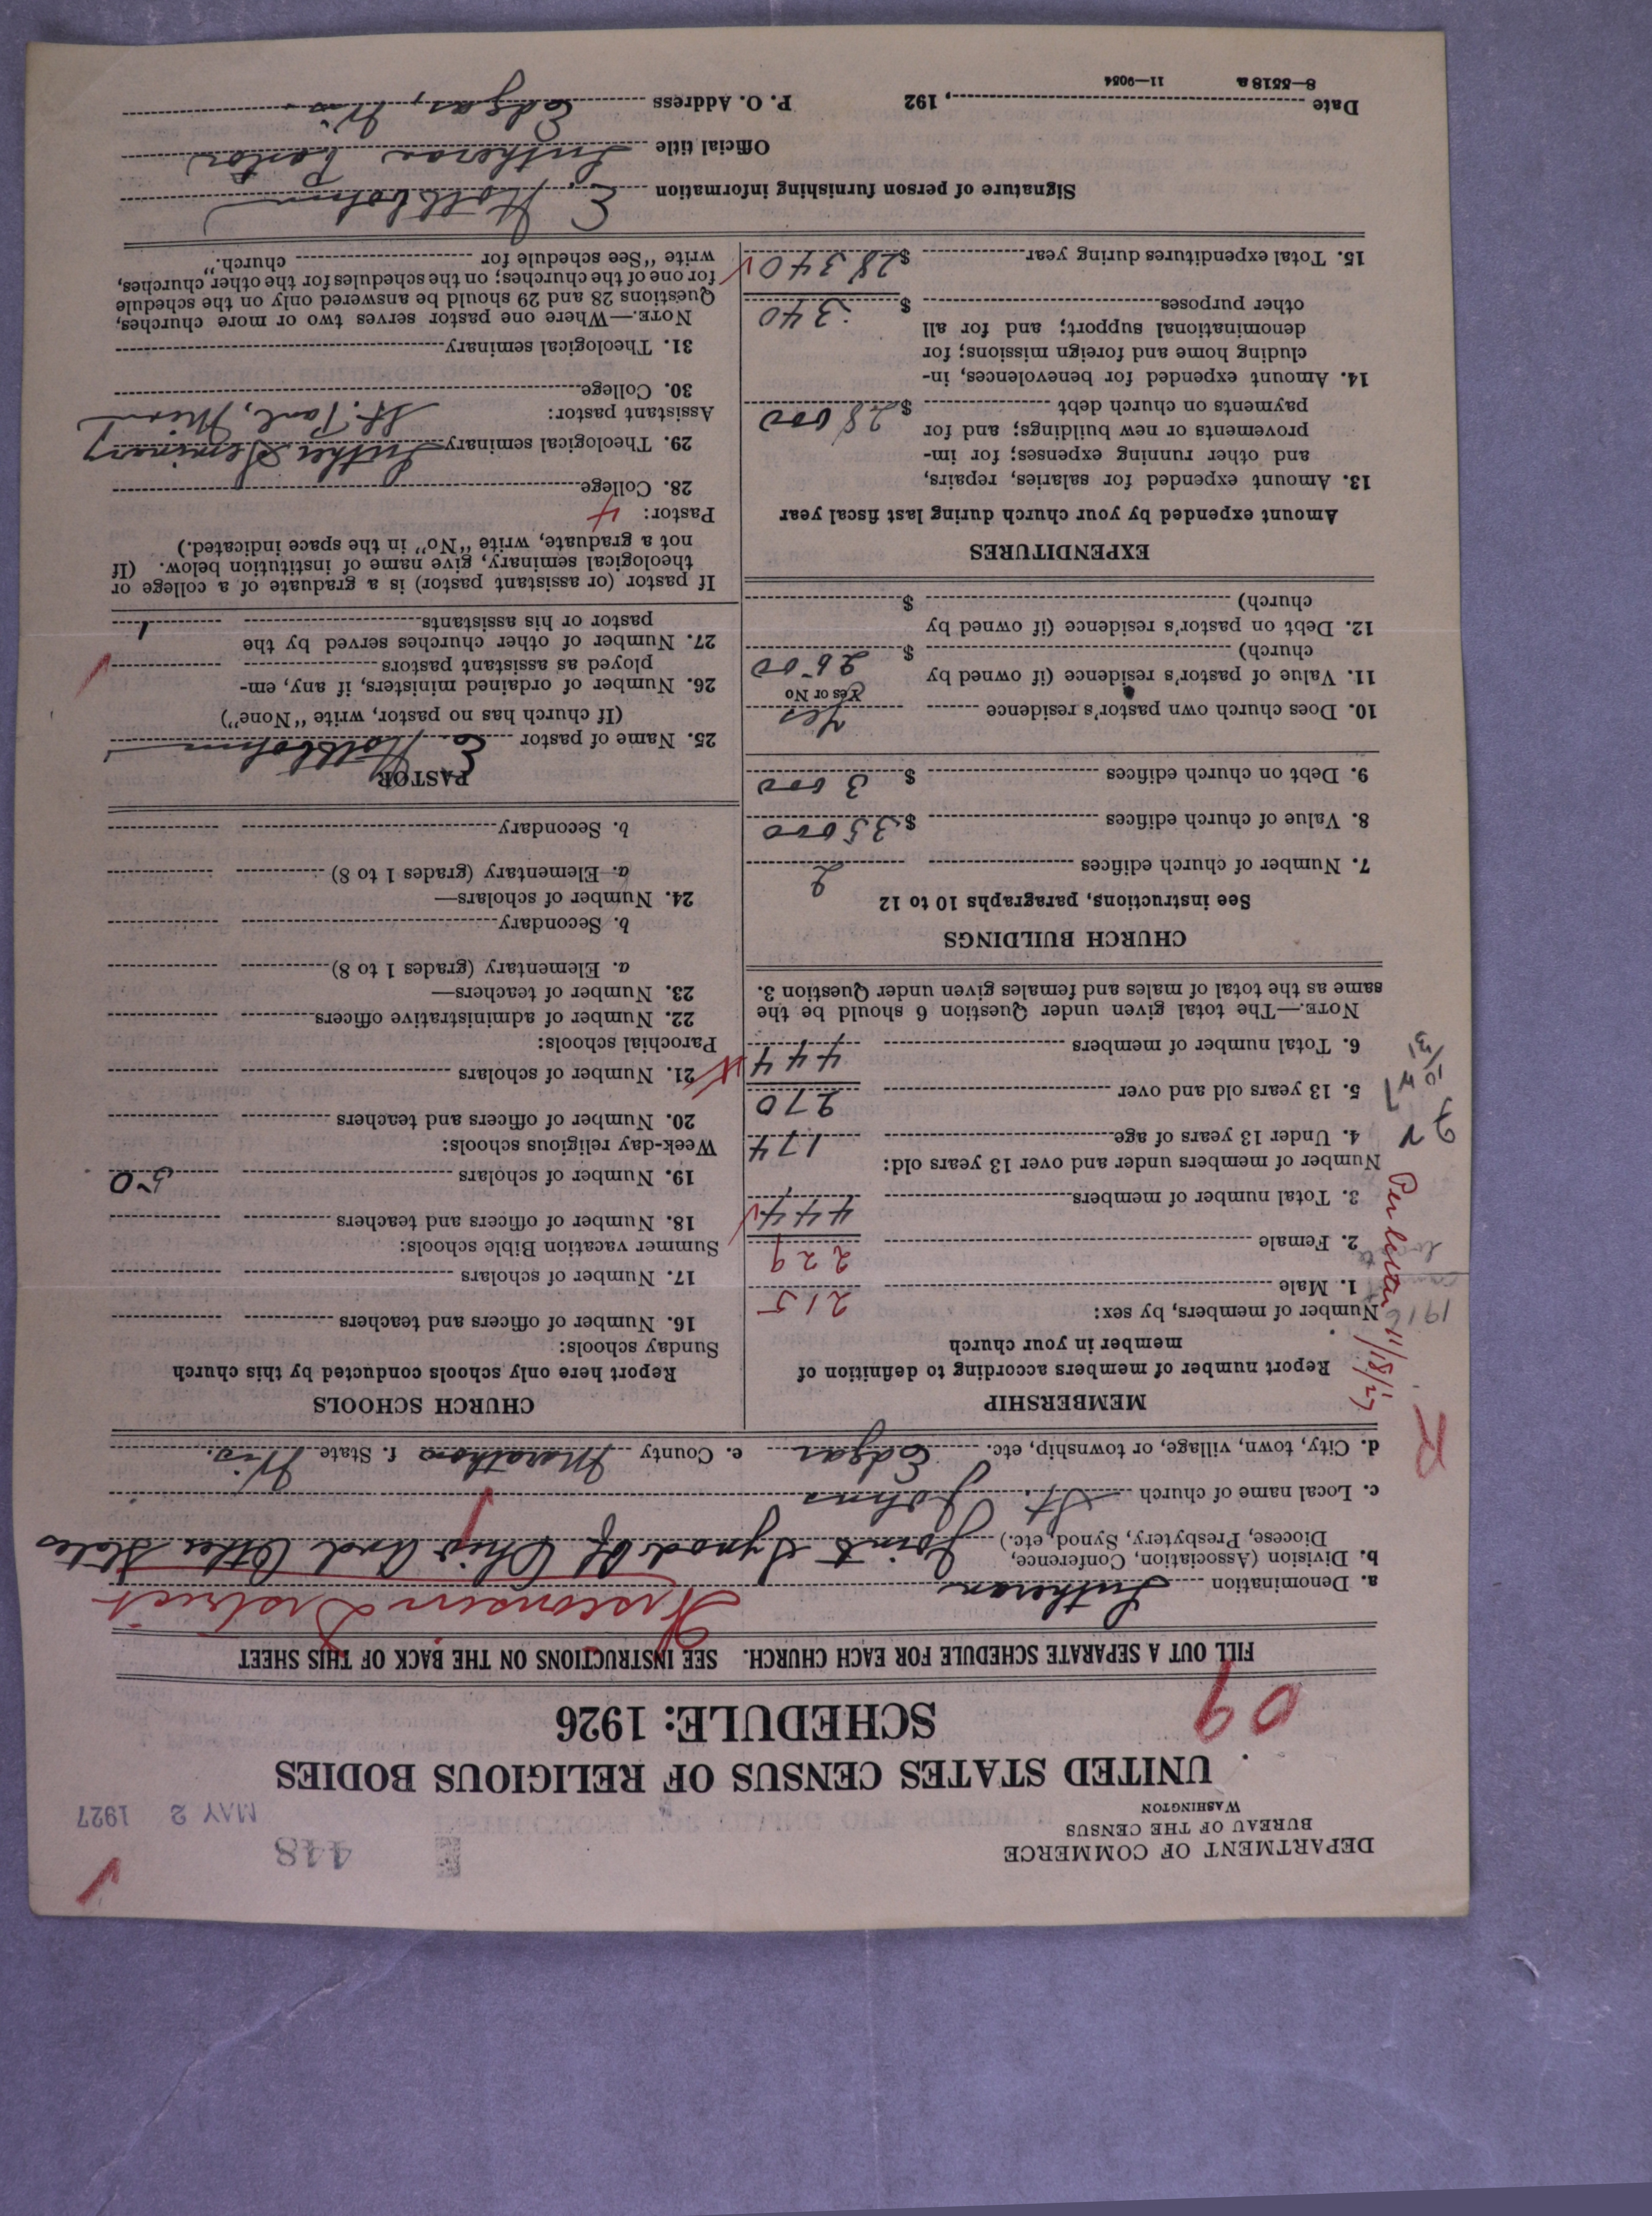 DEPARTMENT OF COMMERCE
BUREAU OF THE CENSUS
WASHINGTON
448
MAY 2 1927
UNITED STATES CENSUS OF RELIGIOUS BODIES
SCHEDULE: 1926
09
FILL OUT A SEPARATE SCHEDULE FOR EACH CHURCH. SEE INSTRUCTIONS ON THE BACK OF THIS SHEET
Wisconsin District
a. Denomination Lutheran
b. Division (Association, Conference,
Diocese, Presbytery, Synod, etc.) Joint Synod Of Ohio And Other States
c. Local name of church St. Johns
d. City, town, village, or township, etc. Edgar e. County Marathon f. State Wis.
R
MEMBERSHIP
Report number of members according to definition of
member in your church
Number of members, by sex:
1. Male 215
2. Female 229
3. Total number of members 444
Number of members under and over 13 years old:
4. Under 13 years of age 174
5. 13 years old and over 270
6. Total number of members 444
NOTE.—The total given under Question 6 should be the
same as the total of males and females given under Question 3.
Per letter 11/18/27
1916
CHURCH BUILDINGS
See instructions, paragraphs 10 to 12
7. Number of church edifices 2
8. Value of church edifices $35000
9. Debt on church edifices $3000
10. Does church own pastor's residence Yes
Yes or No
11. Value of pastor's residence (if owned by
church) $2500
12. Debt on pastor's residence (if owned by
church) $
EXPENDITURES
Amount expended by your church during last fiscal year
13. Amount expended for salaries, repairs,
and other running expenses; for im-
provements or new buildings; and for
payments on church debt $28000
14. Amount expended for benevolences, in-
cluding home and foreign missions; for
denominational support; and for all
other purposes $340
15. Total expenditures during year $28340
CHURCH SCHOOLS
Report here only schools conducted by this church
Sunday schools:
16. Number of officers and teachers
17. Number of scholars
Summer vacation Bible schools:
18. Number of officers and teachers
19. Number of scholars 50
Week-day religious schools:
20. Number of officers and teachers
21. Number of scholars
Parochial schools:
22. Number of administrative officers
23. Number of teachers—
a. Elementary (grades 1 to 8)
b. Secondary
24. Number of scholars—
a. Elementary (grades 1 to 8)
b. Secondary
PASTOR
25. Name of pastor E.
(If church has no pastor, write "None")
26. Number of ordained ministers, if any, em-
ployed as assistant pastors
27. Number of other churches served by the
pastor or his assistants 1
If pastor (or assistant pastor) is a graduate of a college or
theological seminary, give name of institution below. (If
not a graduate, write "No" in the space indicated.)
Pastor: 4
28. College
29. Theological seminary Luther Seminary
St. Paul, Minn
Assistant pastor:
30. College
31. Theological seminary
NOTE.—Where one pastor serves two or more churches,
Questions 28 and 29 should be answered only on the schedule
for one of the churches; on the schedules for the other churches,
write "See schedule for church."
Signature of person furnishing information E.
Official title Lutheran Pastor
Date , 192 P. O. Address Edgar, Wis.
8—5518 a 11—9054